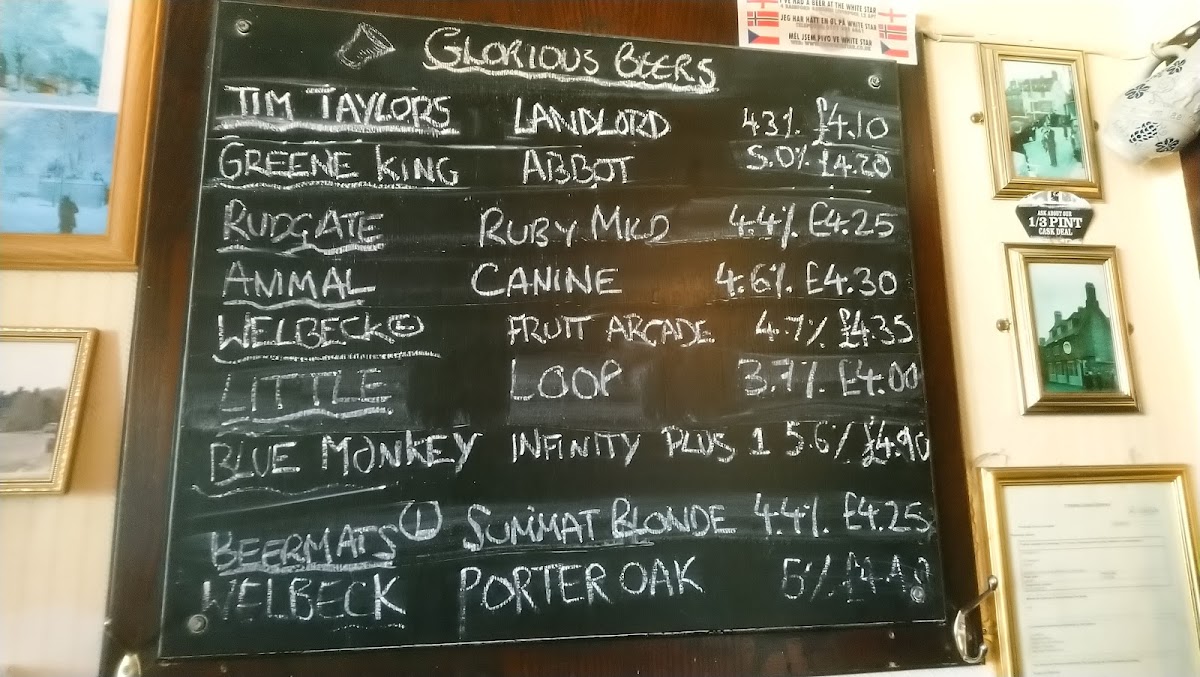 GLORIOUS BEERS
TIM TAYLORS LANDLORD 43% £4.10
GREENE KING ABBOT 5.0% £4.20
RUDGATE RUBY MILD 4.4% £4.25
ANIMAL CANINE 4.6% £4.30
WELBECK Ⓛ FRUIT ARCADE 4.7% £4.35
LITTLE LOOP 3.7% £4.00
BLUE MONKEY INFINITY PLUS 1 5.6% £4.90
BEERMATS Ⓛ SUMMAT BLONDE 4.4% £4.25
WELBECK PORTER OAK
I'VE HAD A BEER AT THE WHITE STAR
JEG HAR HATT EN ØL PÅ WHITE STAR
MĚL JSEM PIVO VE WHITE STAR
ASK ABOUT OUR
1/3 PINT
CASK DEAL